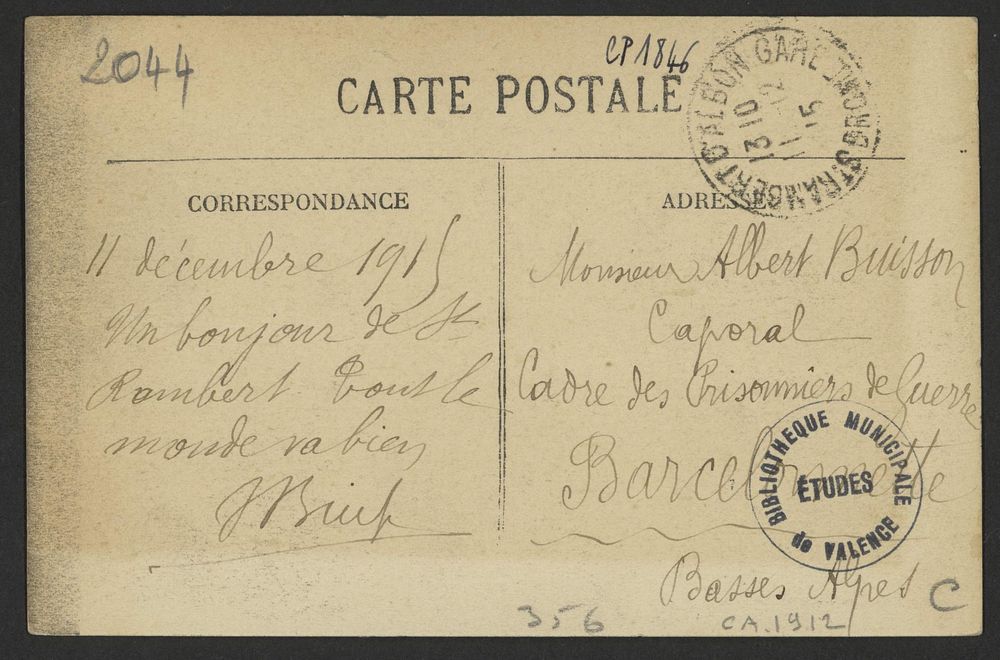 2044
CP1846
CARTE POSTALE
ST RAMBERT D'ALBON GARE DROME
13 10
11 - 12
15
CORRESPONDANCE
11 décembre 1915
Un bonjour de St
Rambert tout le
monde va bien
ADRESSE
Monsieur Albert Buisson
Caporal
Cadre des Prisonniers de Guerre
Barcelonnette
Basses Alpes
BIBLIOTHEQUE MUNICIPALE
ÉTUDES
de VALENCE
C
356
CA.1912